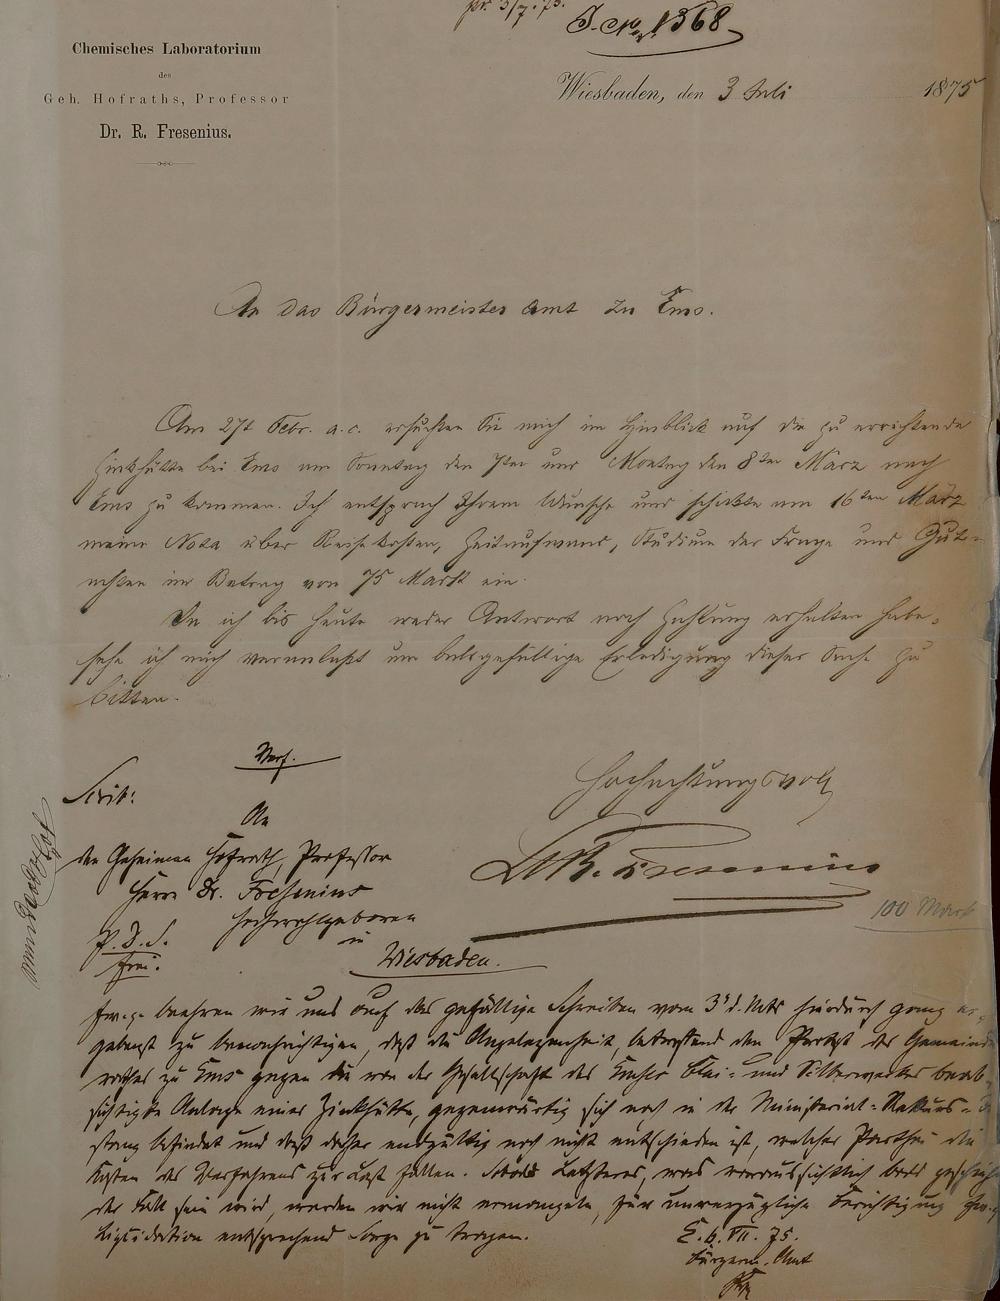 pr. 3/7. 75.
J. No. 1368
Chemisches Laboratorium
des
Geh. Hofraths, Professor
Dr. R. Fresenius.
Wiesbaden, den 3 Juli 1875
An das Bürgermeister Amt zu Ems.
Am 27t Febr. a. c. ersuchten Sie mich im Hinblick auf die zu errichtende
Zinkhütte bei Ems am Sonntag den 7ten und Montag den 8ten März nach
Ems zu kommen. Ich entsprach Ihrem Wunsche und schickte am 16ten März
meine Nota über Reisekosten, Zeitaufwand, Studium der Frage und Gut-
achten im Betrag von 75 Mark ein.
Da ich bis heute weder Antwort noch Zahlung erhalten habe,
sehe ich mich veranlaßt um baldgefällige Erledigung dieser Sache zu
bitten.
Hochachtungsvoll
Dr R. Fresenius
100 Mark
Verf.
Scrib:
An
den Geheimen Hofrath, Professor
Herrn Dr. Fresenius
Hochwohlgeboren
in
Wiesbaden.
P. D. S.
frei.
Ew. beehren wir uns auf das gefällige Schreiben vom 3t d. Mts hiedurch ganz er-
gebenst zu benachrichtigen, daß die Angelegenheit, betreffend den Protest des Gemeinde
rathes zu Ems gegen die von der Gesellschaft des Emser Blei- und Silberwerkes beab-
sichtigte Anlage einer Zinkhütte, gegenwärtig sich noch in der Ministerial-Rekurs-
stanz befindet und daß daher endgültig noch nicht entschieden ist, welcher Parthei die
Kosten des Verfahrens zur Last fallen. Letzteres, was voraussichtlich bald
der Fall sein wird, werden wir nicht ermangeln, für unverzügliche Berichtigung
Liquidation entsprechend Sorge zu tragen.
E. 6. VII. 75.
Bürgerm. Amt